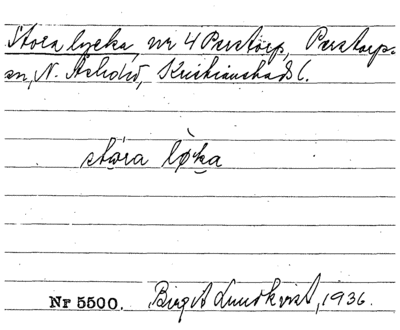 Stora lycka, nr 4 Perstorp, Perstorp.
sn, N. Åsbohd, Kristianstads l.
stǫ́ra lø̀ka
Nr 5500. Birgit Lundkvist, 1936.